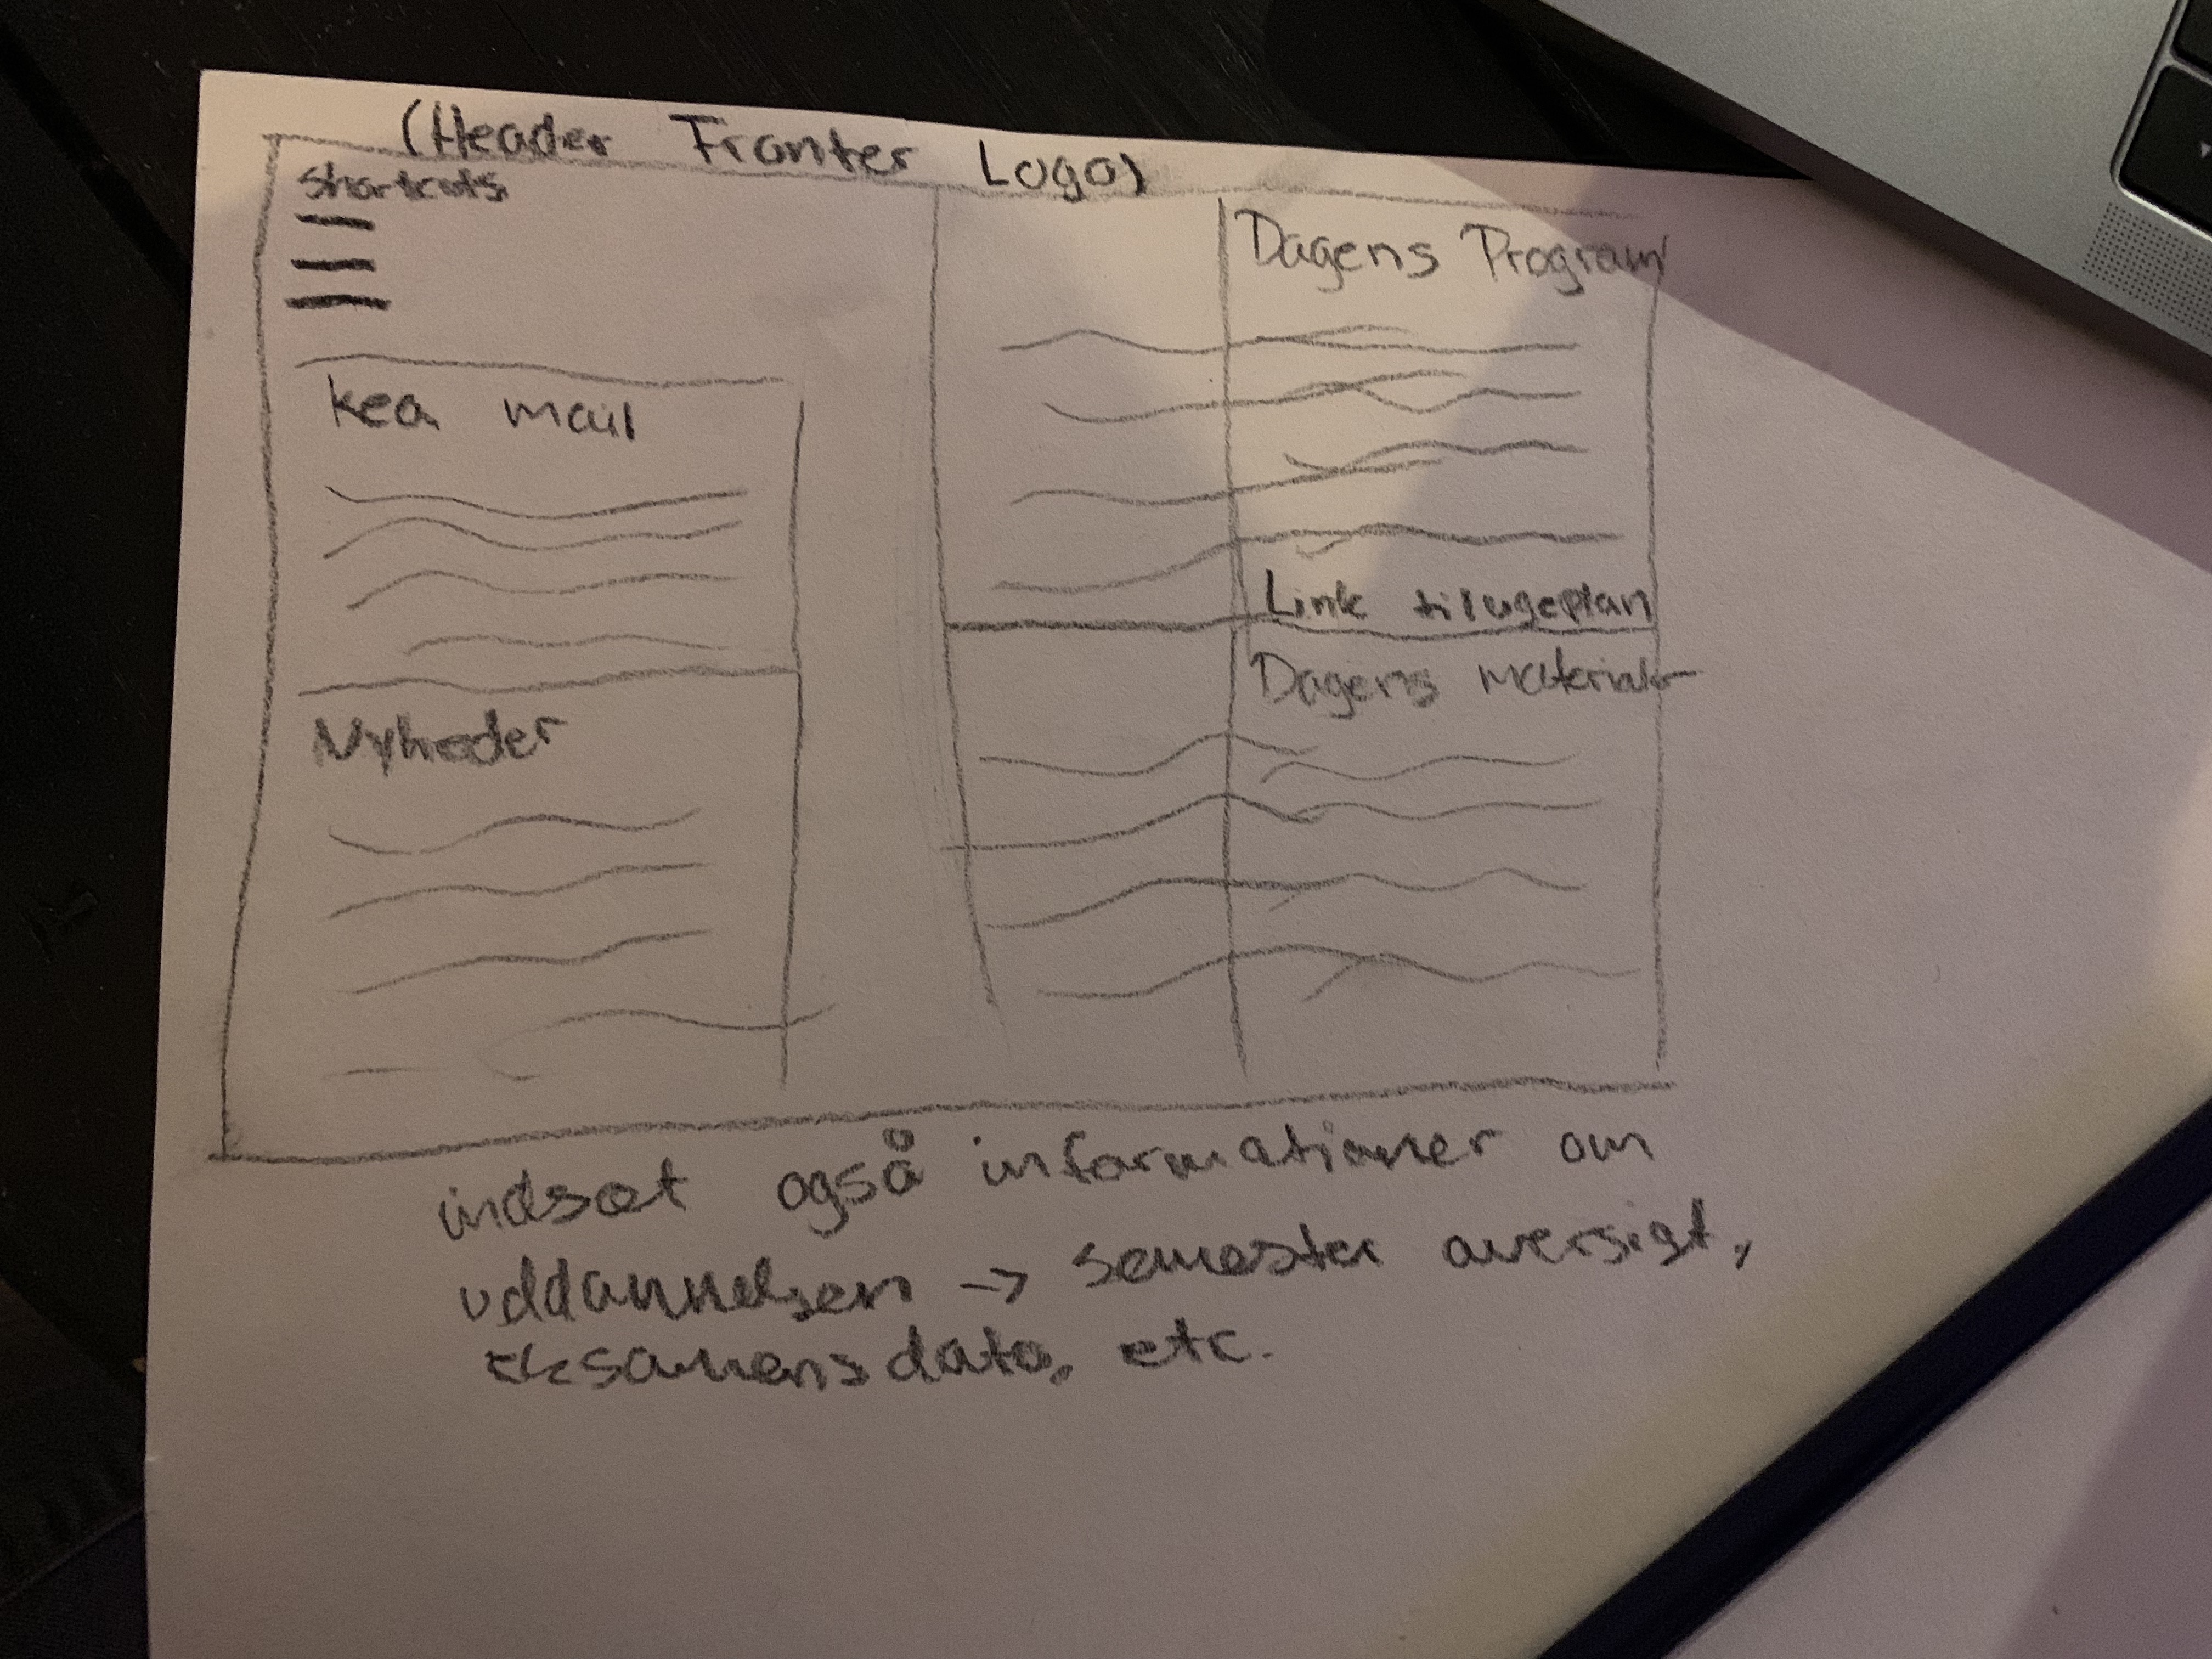 (Header Fronter Logo)
Shortcuts
kea mail
Nyheder
Dagens Program
Link til ugeplan
Dagens materialer
indsæt også informationer om
uddannelsen -> semester oversigt,
Eksamensdato, etc.